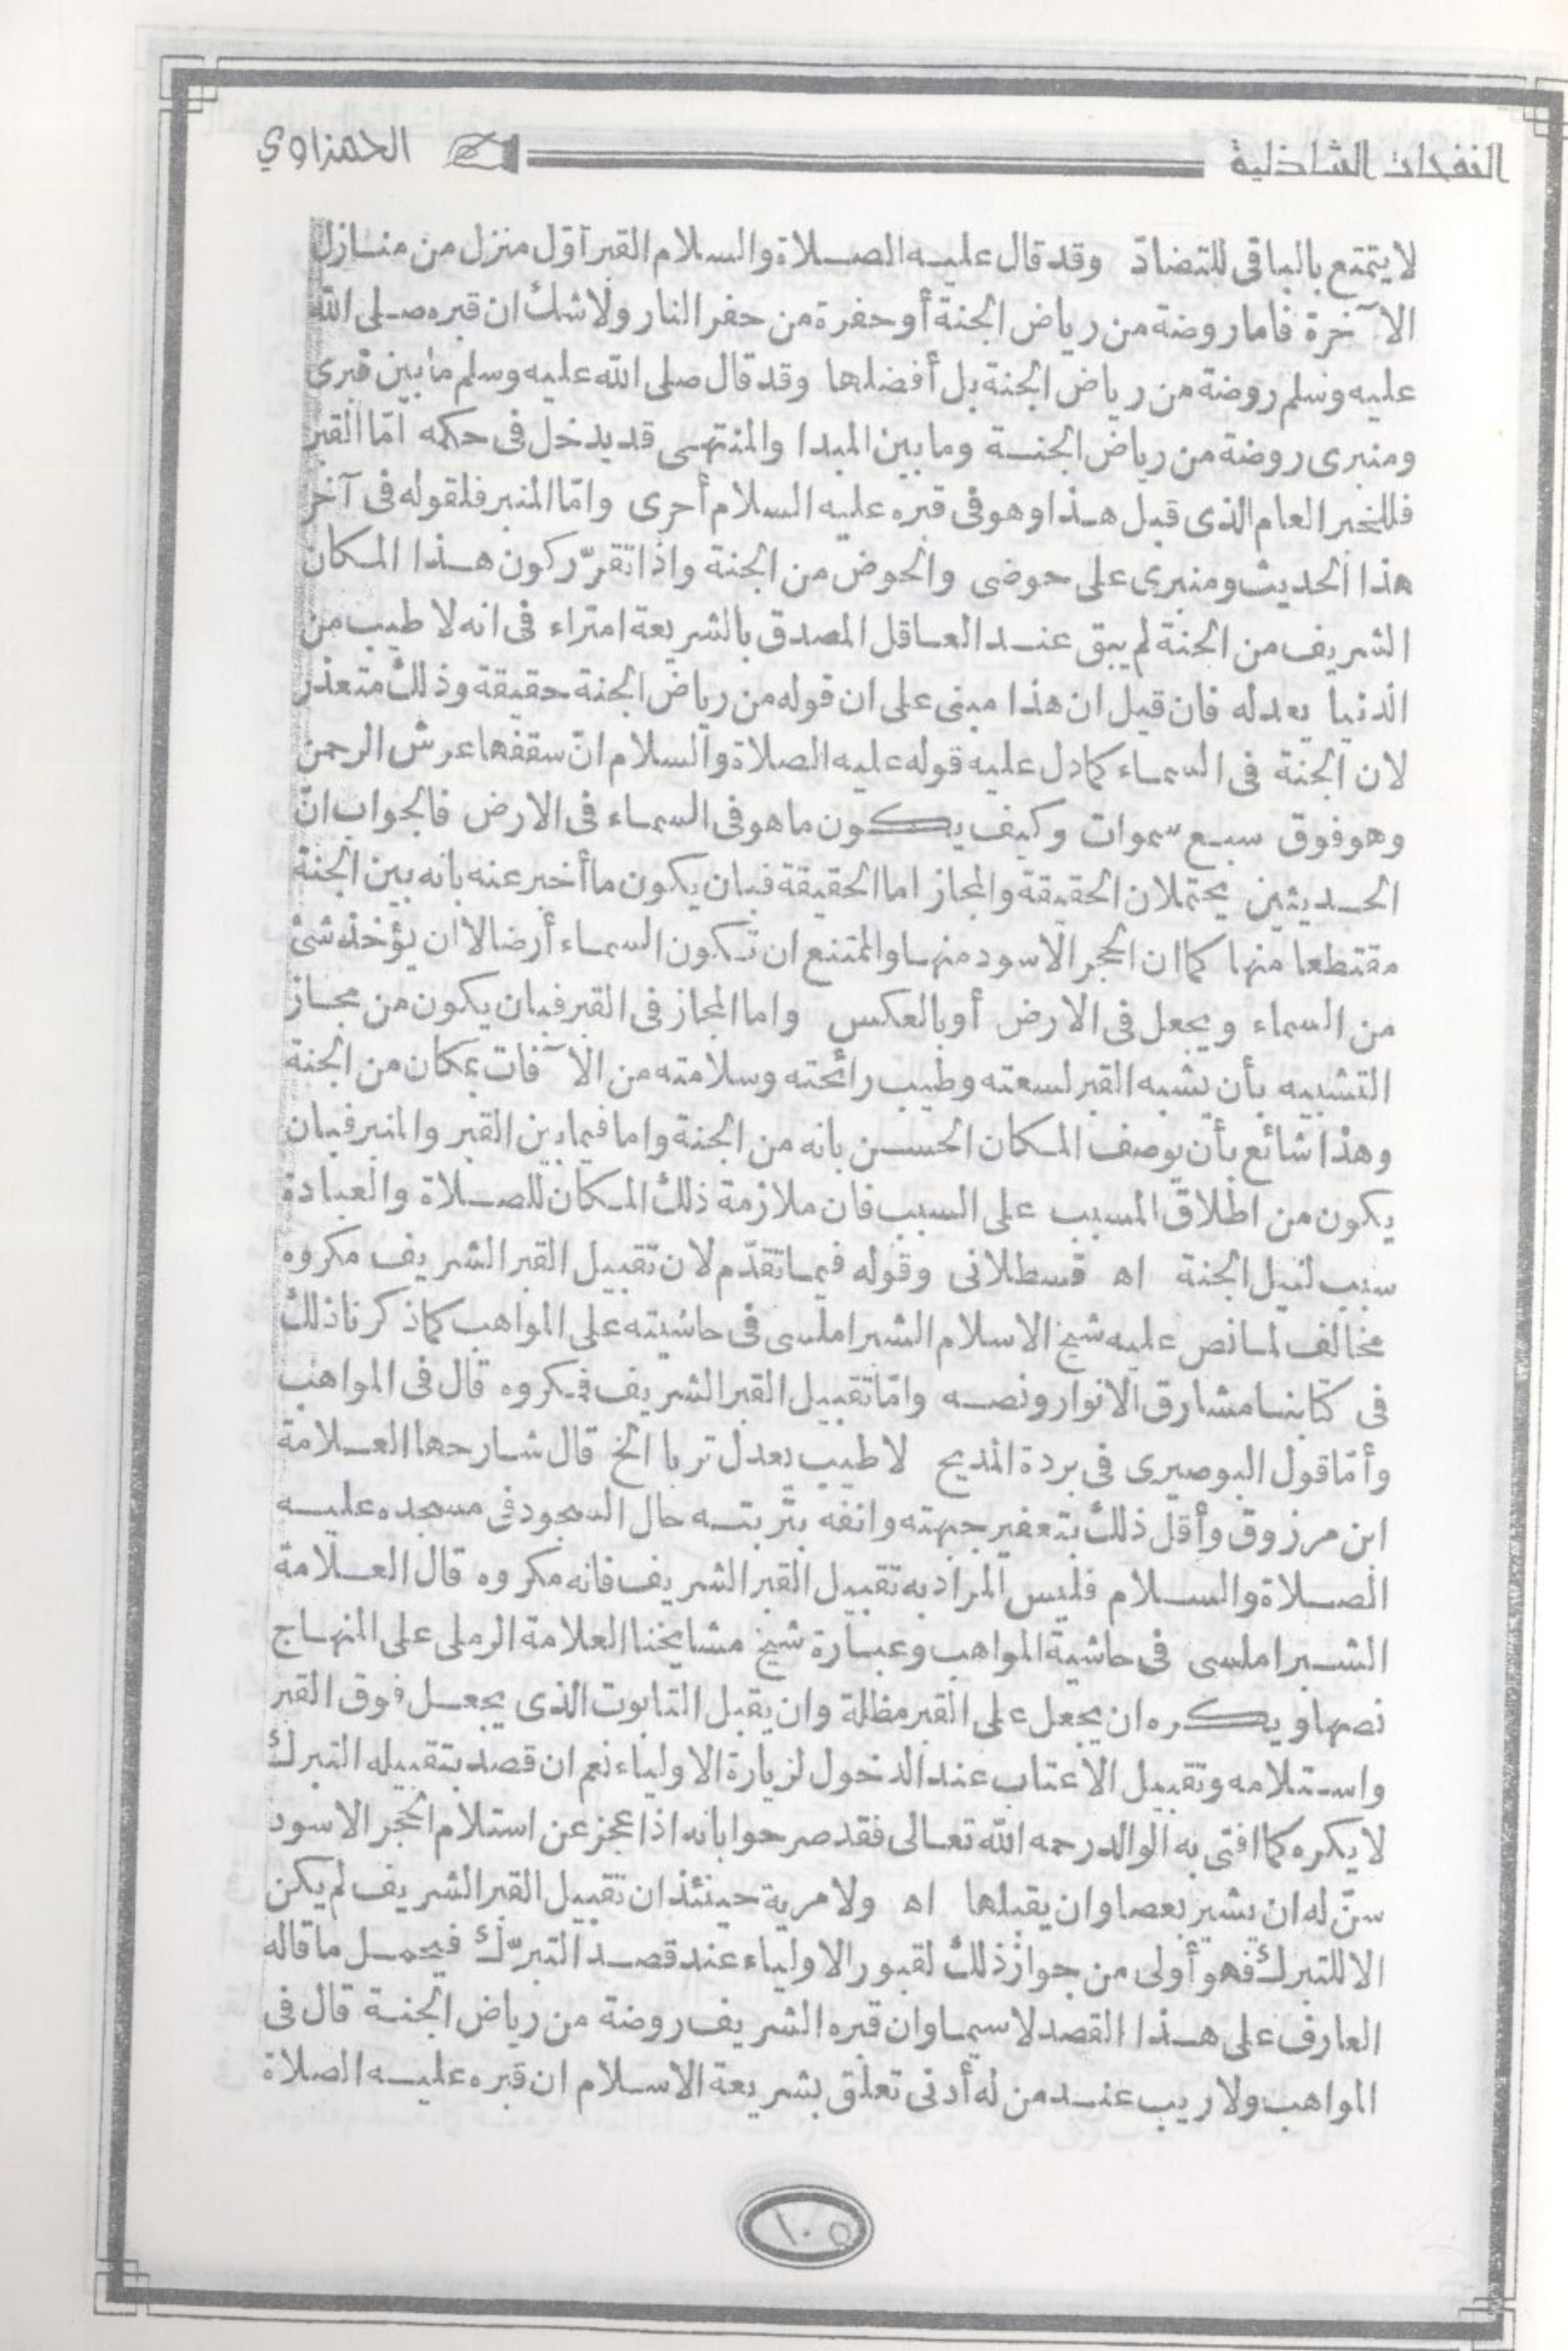 النفحات الشاذلية الحمزاوي
لا يتمتع بالباقى للتضادّ وقد قال عليه الصلاة والسلام القبر أوّل منزل من منازل
الآخرة فاما روضة من رياض الجنة أو حفرة من حفر النار ولا شك ان قبره صلى الله
عليه وسلم روضة من رياض الجنة بل أفضلها وقد قال صلى الله عليه وسلم ما بين قبرى
ومنبرى روضة من رياض الجنة وما بين المبدا والمنتهى قد يدخل فى حكمه امّا القبر
فللخبر العام الذى قبل هذا وهو فى قبره عليه السلام أحرى وامّا المنبر فلقوله فى آخر
هذا الحديث ومنبرى على حوضى والحوض من الجنة واذا تقرّر كون هذا المكان
الشريف من الجنة لم يبق عند العاقل المصدق بالشريعة امتراء فى انه لا طيب من
الدنيا يعدله فان قيل ان هذا مبنى على ان قوله من رياض الجنة حقيقة وذلك متعذر
لان الجنة فى السماء كما دل عليه قوله عليه الصلاة والسلام انّ سقفها عرش الرحمن
وهو فوق سبع سموات وكيف يكون ما هو فى السماء فى الارض فالجواب انّ
الحديثين يحتملان الحقيقة والمجاز اما الحقيقة فبان يكون ما أخبر عنه بانه بين الجنة
مقتطعا منها كما ان الحجر الاسود منها والممتنع ان تكون السماء أرضا لا ان يؤخذ شئ
من السماء ويجعل فى الارض أو بالعكس واما المجاز فى القبر فبان يكون من مجاز
التشبيه بأن يشبه القبر لسعته وطيب رائحته وسلامته من الآفات بمكان من الجنة
وهذا شائع بأن يوصف المكان الحسن بانه من الجنة واما فيما بين القبر والمنبر فبان
يكون من اطلاق المسبب على السبب فان ملازمة ذلك المكان للصلاة والعبادة
سبب لنيل الجنة اه قسطلانى وقوله فيما تقدّم لان تقبيل القبر الشريف مكروه
مخالف لما نص عليه شيخ الاسلام الشبراملسى فى حاشيته على المواهب كما ذكرنا ذلك
فى كتابنا مشارق الانوار ونصه وامّا تقبيل القبر الشريف فمكروه قال فى المواهب
وأمّا قول البوصيرى فى بردة المديح لا طيب يعدل تربا الخ قال شارحها العلامة
ابن مرزوق وأقل ذلك بتعفير جبهته وانفه بتربته حال السجود فى مسجده عليه
الصلاة والسلام فليس المراد به تقبيل القبر الشريف فانه مكروه قال العلامة
الشبراملسى فى حاشية المواهب وعبارة شيخ مشايخنا العلامة الرملى على المنهاج
نصها ويكره ان يجعل على القبر مظلة وان يقبل التابوت الذى يجعل فوق القبر
واستلامه وتقبيل الاعتاب عند الدخول لزيارة الاولياء نعم ان قصد بتقبيله التبرك
لا يكره كما افتى به الوالد رحمه الله تعالى فقد صرحوا بانه اذا عجز عن استلام الحجر الاسود
سنّ له ان يشير بعصا وان يقبلها اه ولا مرية حينئذ ان تقبيل القبر الشريف لم يكن
الا للتبرك فهو أولى من جواز ذلك لقبور الاولياء عند قصد التبرّك فيحمل ما قاله
العارف على هذا القصد لا سيما وان قبره الشريف روضة من رياض الجنة قال فى
المواهب ولا ريب عند من له أدنى تعلق بشريعة الاسلام ان قبره عليه الصلاة
١٠٥